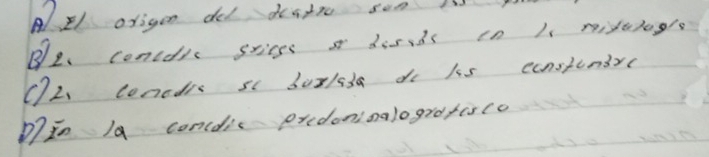 A) El origen del teatro son los
B) La comedia griega se basaba en la mitología
C) La comedia se burlaba de las constumbre
D) En la comedia predominalogrotesco